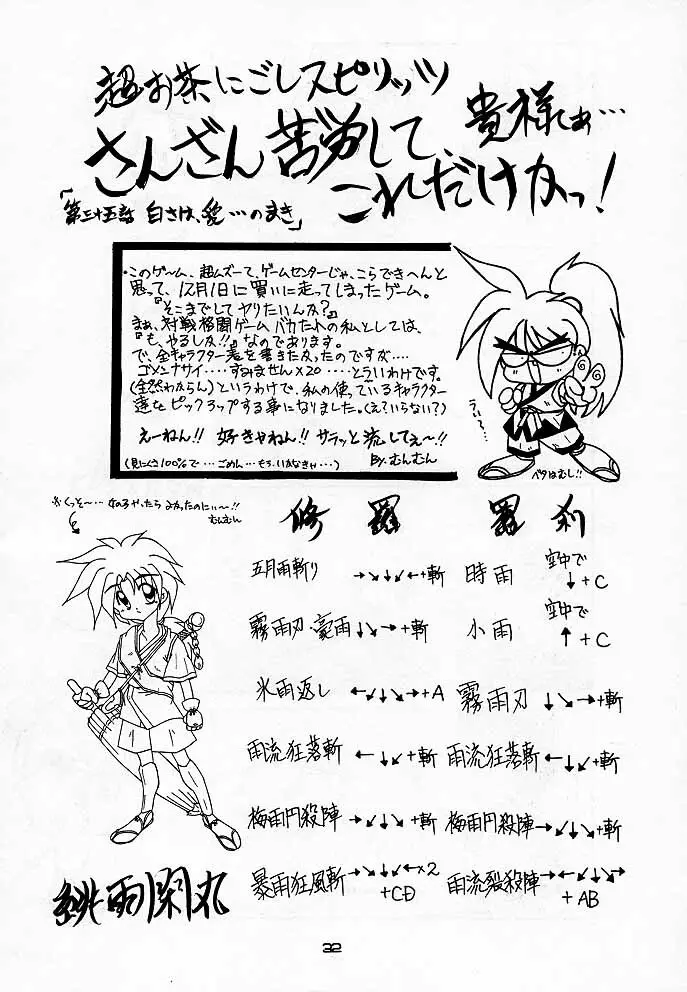 超お茶にごしスピリッツ
さんざん苦労して、
貴様しぁ…
これだけかっ!
「第三十五話 白さは、愛…のまき」
・このゲーム、超ムズーて、ゲームセンターじゃ、こらできへんと
思って、12月1日に買いに走ってしまったゲーム。
『そこまでしてヤりたいんか?』
まぁ、対戦格闘ゲームバカたれの私としては、
『も、やるしか!!』なのであります。
で、全キャラクター表を書きたかったのですが‥‥
ゴメンナサイ‥‥すみません×20 ‥‥とういわけです。
(全然わからん)というわけで、私の使っているキャラクター
達をピックアップする事になりました。(え?いらない?)
えーねん!! 好きゃねん!! サラッと流してぇ〜!!
(見にくさ100%で‥‥ごめん‥‥もう、いかなきゃ‥‥)
By.むんむん
うぃ〜‥
ベタはむし!!
※くっそ〜‥‥ 女のこやったら よかったのにぃ〜!!
むんむん
修羅 羅刹
五月雨斬り →↘↓↙←+斬
時雨 空中で ↓+C
霧雨刃・豪雨 ↓↘→+斬
小雨 空中で ↑+C
氷雨返し ←↙↓↘→+A
霧雨刃 ↓↘→+斬
雨流狂落斬 ←↓↙+斬
雨流狂落斬 ←↓↙+斬
梅雨円殺陣 →↙↓↘+斬
梅雨円殺陣 →↙↓↘+斬
暴雨狂風斬 →↘↓↙←×2 +CD
雨流裂殺陣 →←↙↓↘→ +AB
緋雨閑丸
32